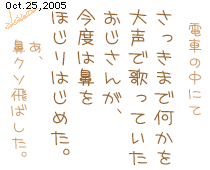 Oct.25,2005
電車の中にて
さっきまで何かを
大声で歌っていた
おじさんが、
今度は鼻を
ほじりはじめた。
あ、
鼻クソ飛ばした。